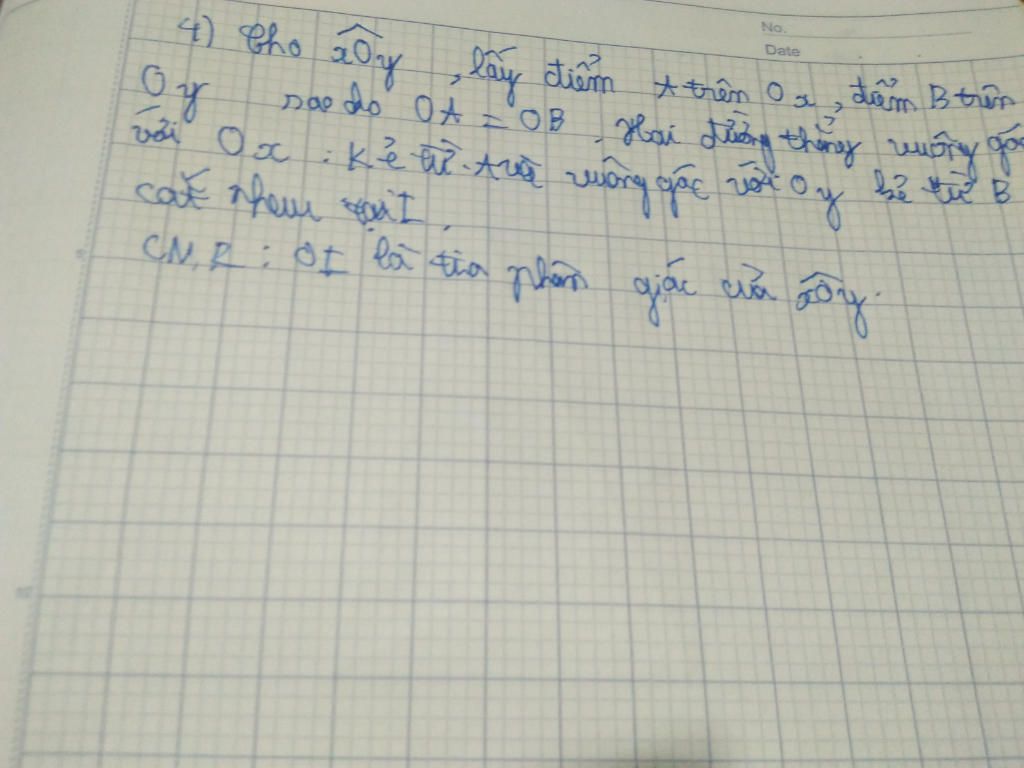 No.
Date
4) Cho xÔy, lấy điểm A trên Ox, điểm B trên
Oy sao cho OA = OB. Hai đường thẳng vuông góc
với Ox . Kẻ từ A và vuông góc với Oy kẻ từ B
cắt nhau tại I.
CMR: OI là tia phân giác của xÔy.